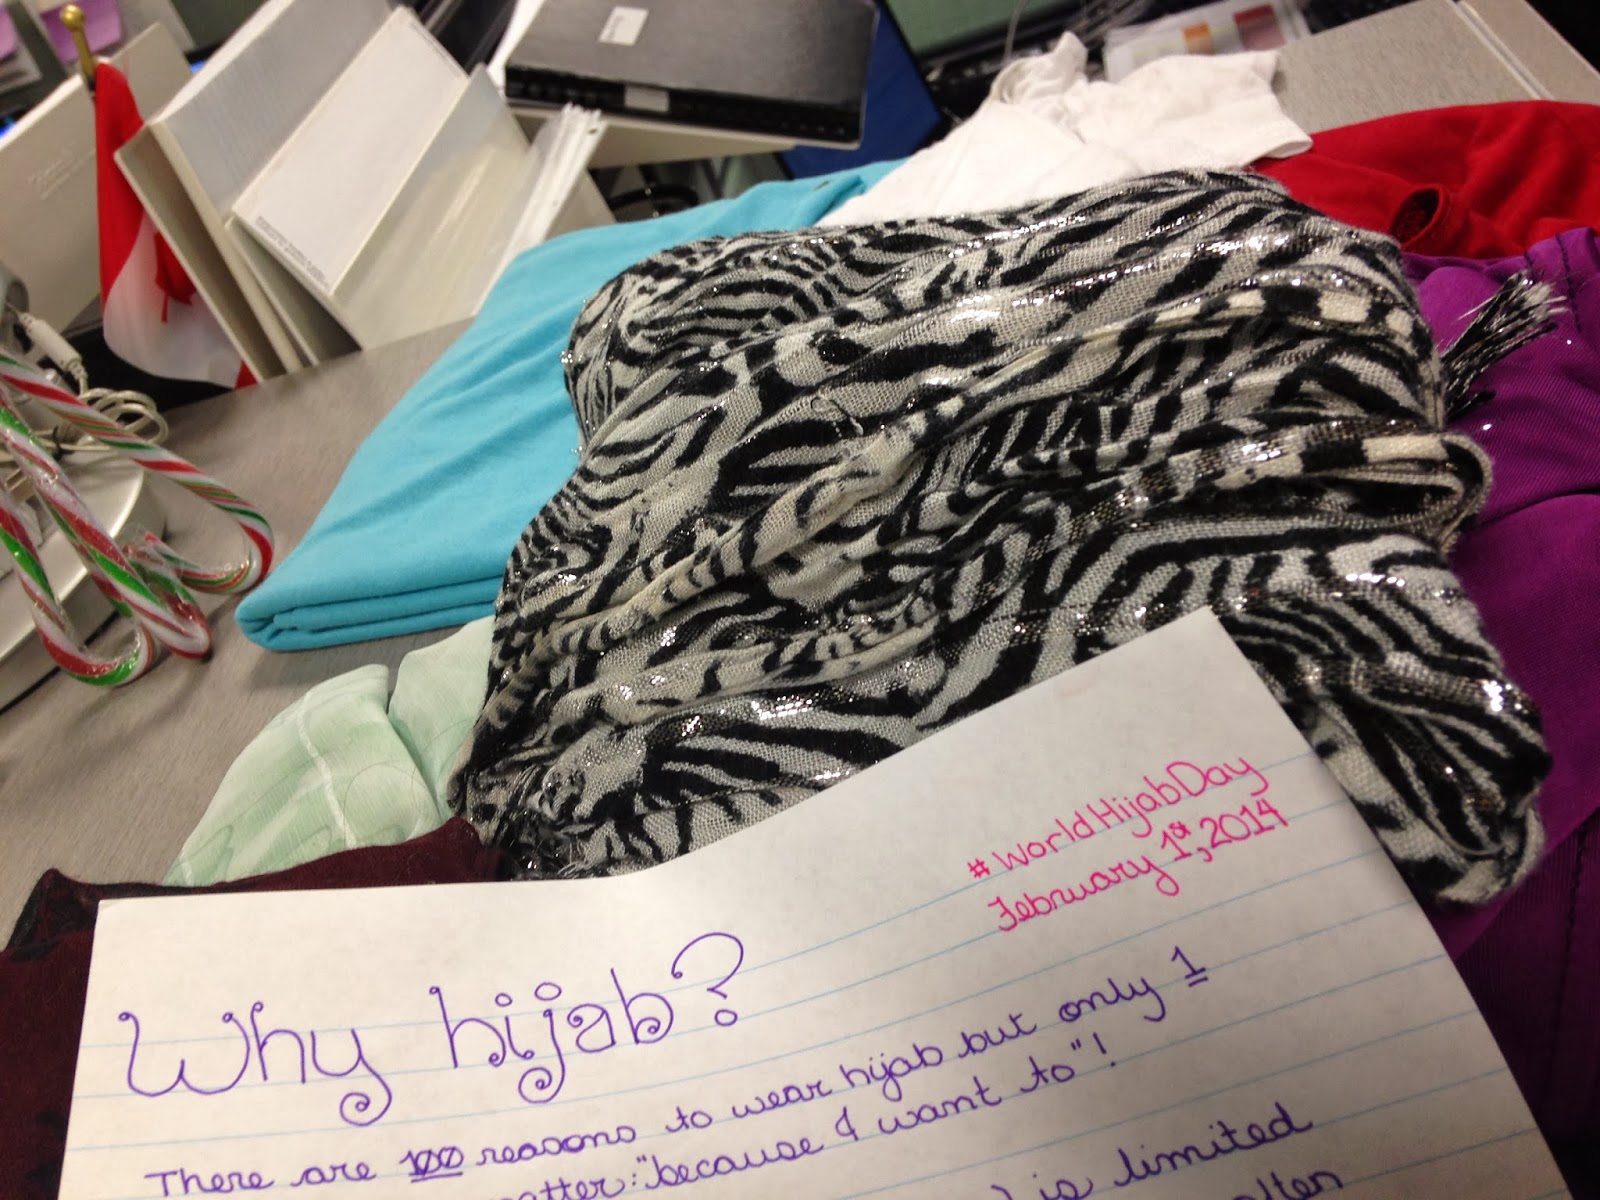 #WorldHijabDay
February 1st, 2014
Why hijab?
There are 100 reasons to wear hijab but only 1
matter: "because I want to"!
is limited
often